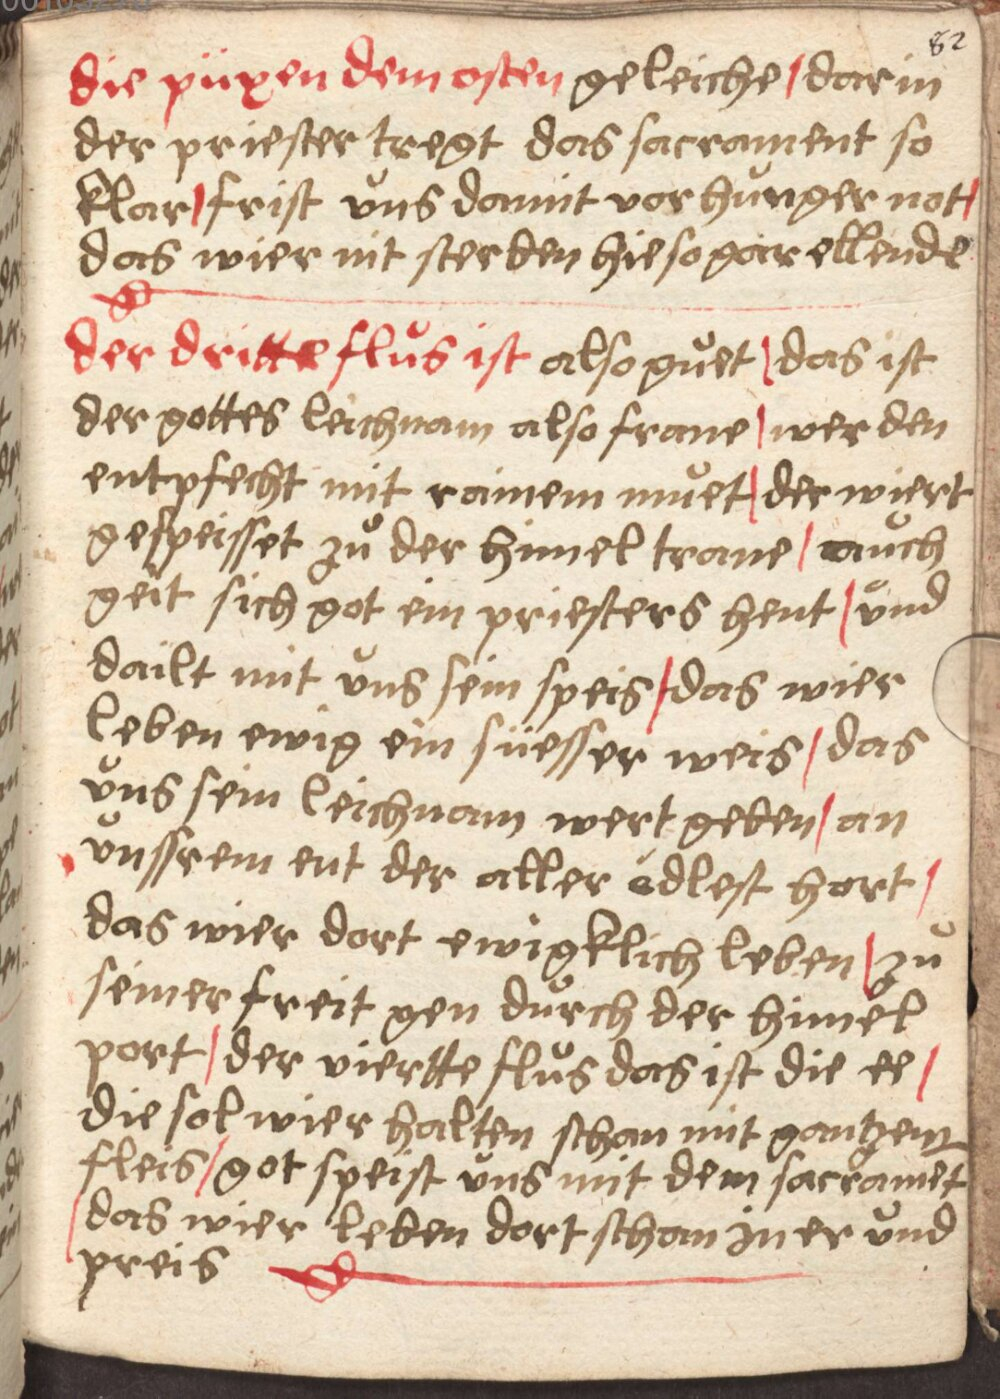 82
die püxen dem osten geleiche / dar in
der priester tregt das sacrament so
klar / frist uns damit vor hunger not /
das wier nit sterben hie so gar ellende
der dritte flus ist also guet / das ist
der gottes leichnam also frane / wer den
entpfecht mit rainem muet / der wiert
gespeisset zu der himel trane / auch
geit sich got ein priesters hent / und
dailt mit uns sein speis / das wier
leben ewig ein süesser weis / das
uns sein leichnam wert geben / an
unssrem ent der aller edlest hort /
das wier dort ewigklich leben / zu
seiner freit gen durch der himel
port / der viertte flus das ist die ee /
die sol wier halten schan mit gantzem
fleis / got speist uns mit dem sacramet
das wier leben dort schan in er und
preis